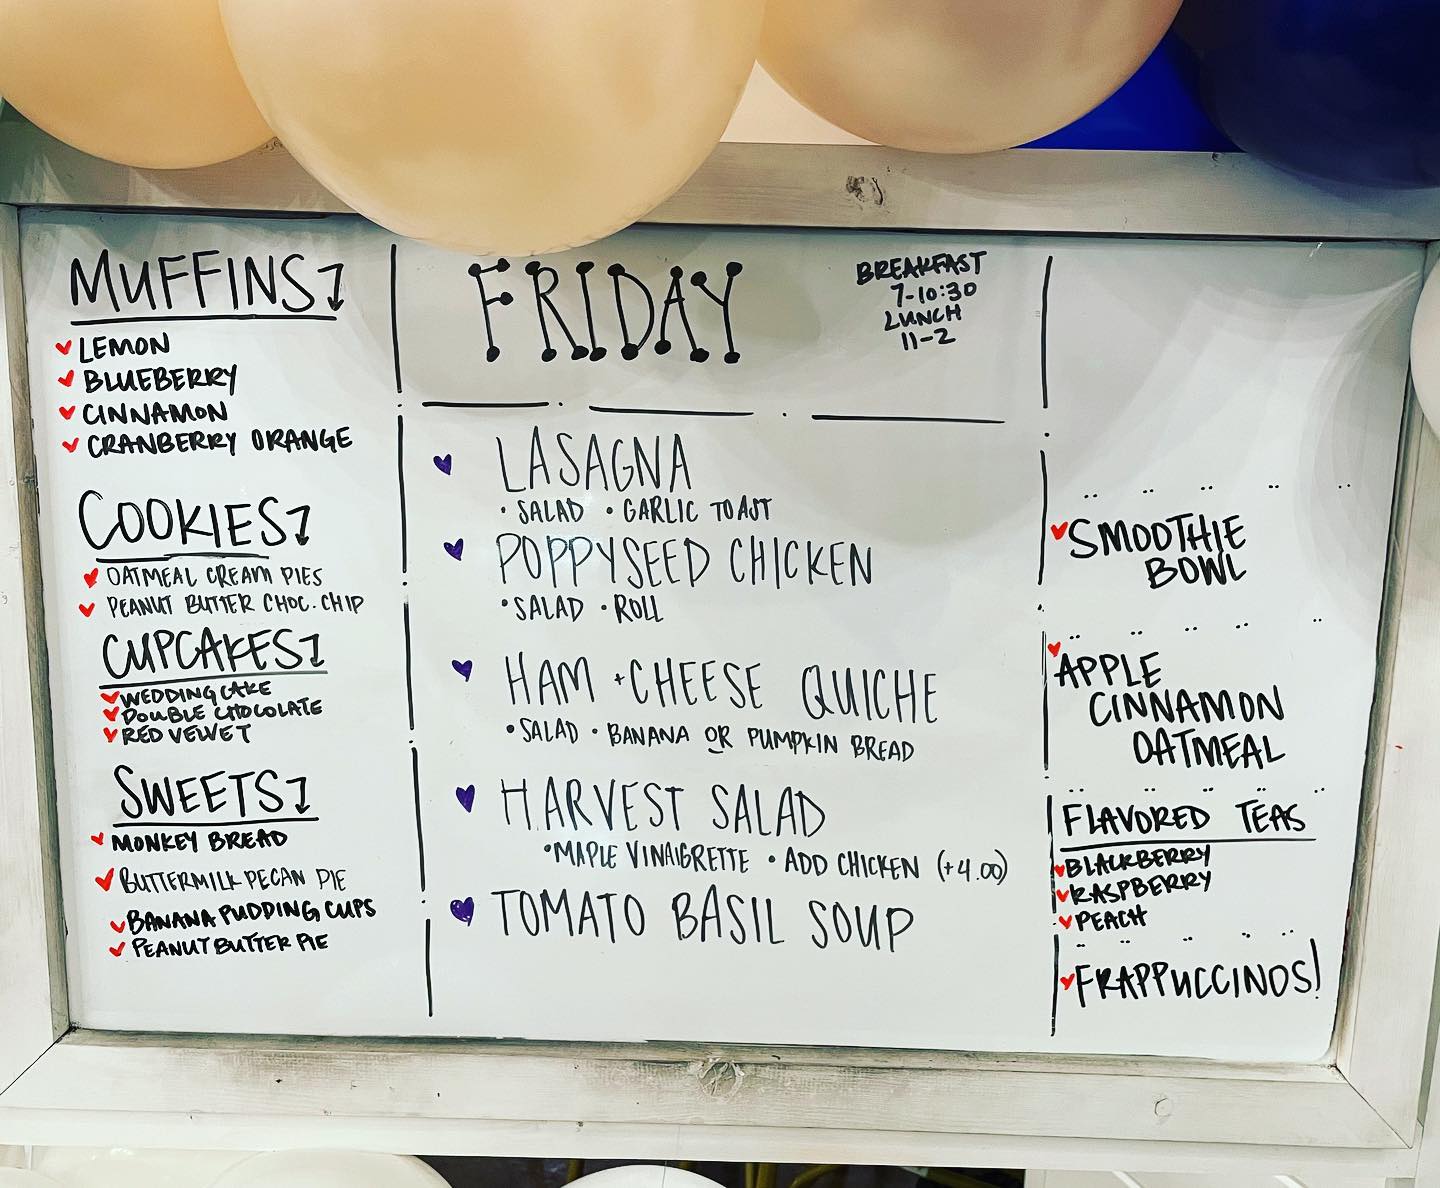 MUFFINS
LEMON
BLUEBERRY
CINNAMON
CRANBERRY ORANGE
COOKIES
OATMEAL CREAM PIES
PEANUT BUTTER CHOC. CHIP
CUPCAKES
WEDDING CAKE
DOUBLE CHOCOLATE
RED VELVET
SWEETS
MONKEY BREAD
BUTTERMILK PECAN PIE
BANANA PUDDING CUPS
PEANUT BUTTER PIE
FRIDAY
BREAKFAST
7-10:30
LUNCH
11-2
LASAGNA
• SALAD • GARLIC TOAST
POPPYSEED CHICKEN
• SALAD • ROLL
HAM + CHEESE QUICHE
• SALAD • BANANA OR PUMPKIN BREAD
HARVEST SALAD
• MAPLE VINAIGRETTE • ADD CHICKEN (+4.00)
TOMATO BASIL SOUP
SMOOTHIE
BOWL
APPLE
CINNAMON
OATMEAL
FLAVORED TEAS
BLACKBERRY
RASPBERRY
PEACH
FRAPPUCCINOS!